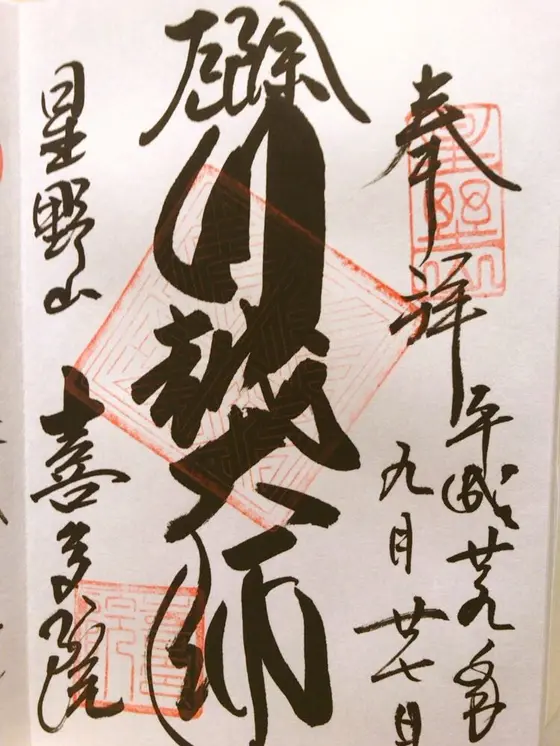 奉拝
平成廿九年
九月廿七日
厄除
川越大師
星野山
喜多院